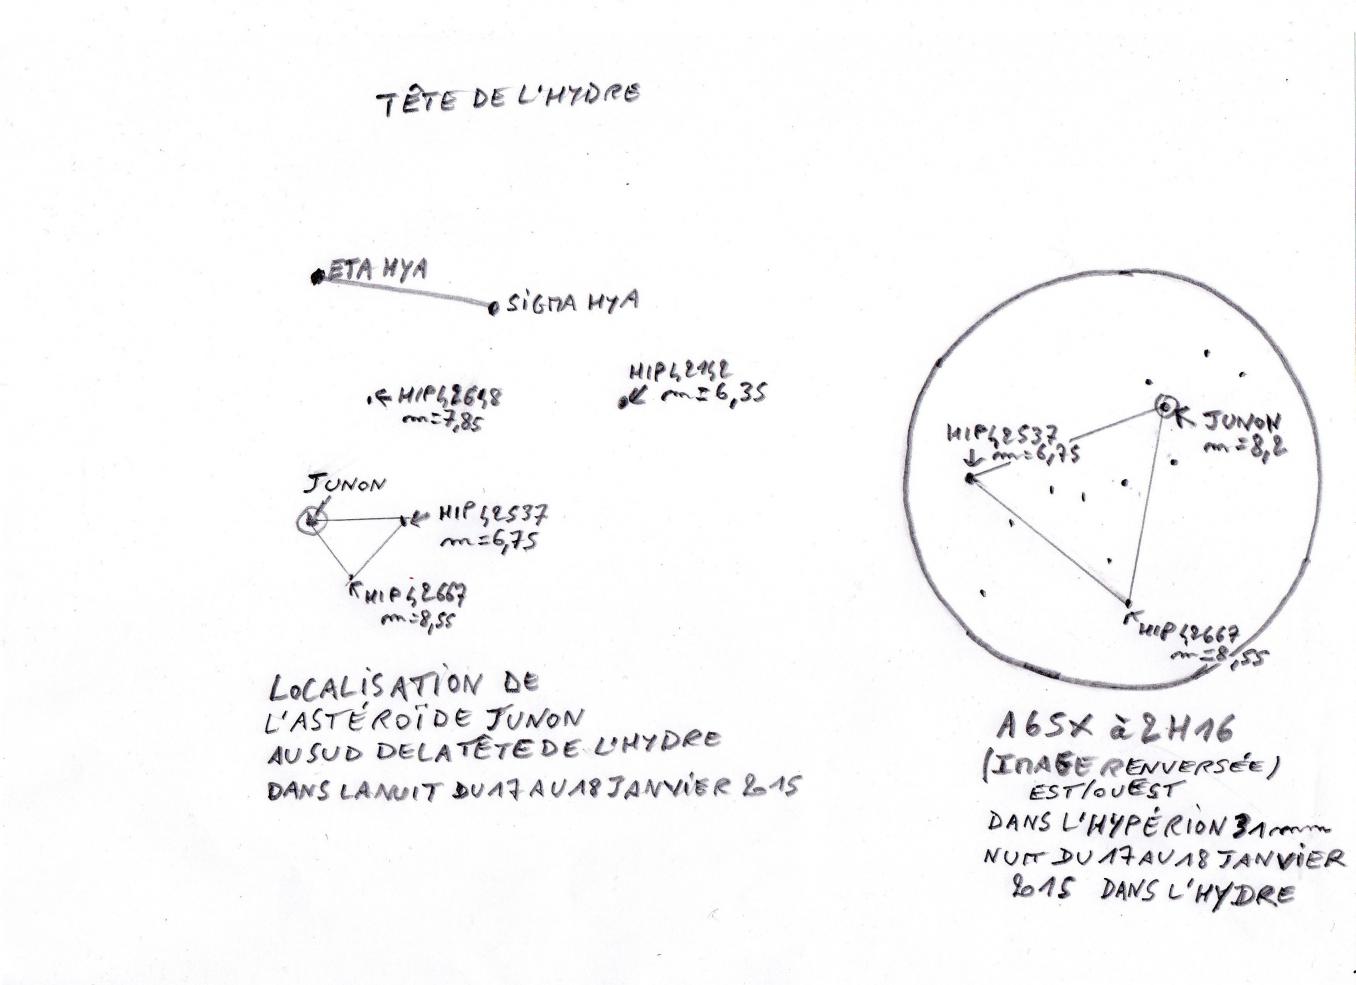 TÊTE DE L'HYDRE
ETA HYA
SIGMA HYA
HIP 42648
m=7,85
HIP 42142
m=6,35
JUNON
HIP 42537
m=6,75
HIP 42667
m=8,55
LOCALISATION DE
L'ASTÉROÏDE JUNON
AU SUD DE LA TÊTE DE L'HYDRE
DANS LA NUIT DU 17 AU 18 JANVIER 2015
HIP 42537
m=6,75
JUNON
m=8,2
HIP 42667
m=8,55
A 65X à 2H16
(IMAGE RENVERSÉE)
EST/OUEST
DANS L'HYPÉRION 31mm
NUIT DU 17 AU 18 JANVIER
2015 DANS L'HYDRE